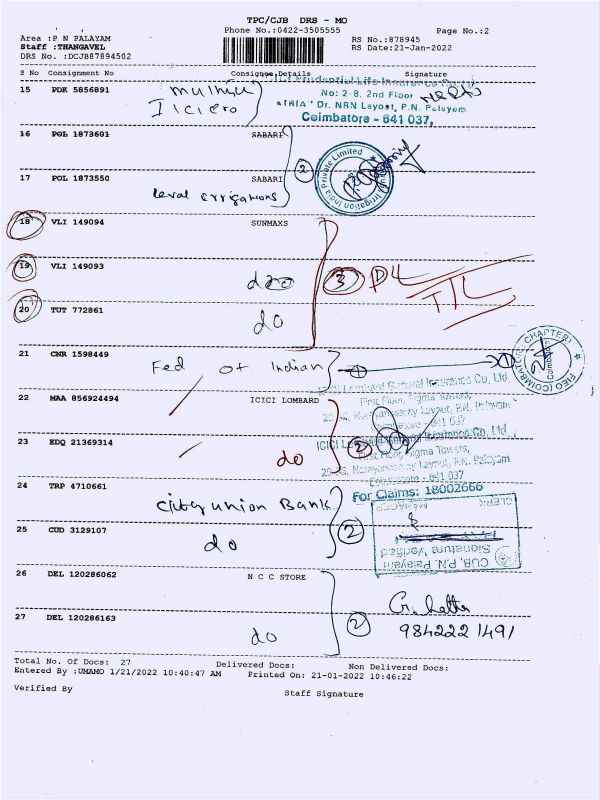 TPC/CJB DRS - MO
Phone No.:0422-3505555
Page No.:2
Area :P N PALAYAM
Staff :THANGAVEL
DRS No. :DCJB87894502
RS No.:878945
RS Date:21-Jan-2022
S No Consignment No Consignee Details Signature
15 PDK 5856891
ICICI Prudential Life Insurance Co. Ltd
No: 2-8, 2nd Floor
"TRIA" Dr. NRN Layout, P.N. Palayam
Coimbatore - 641 037,
16 POL 1873601 SABARI
2
Irrigation India Private Limited
17 POL 1873550 SABARI
18 VLI 149094 SUNMAXS
19 VLI 149093
3 DL
20 TUT 772861
do
21 CNR 1598449
Fed of Indian
1
FIEO (COIMBATORE CHAPTER)
Coimbatore
22 MAA 856924494 ICICI LOMBARD
ICICI Lombard General Insurance Co, Ltd,
First Floor, Sigma Towers,
Narayanasamy Layout, P.N. Palayam
23 EDQ 21369314
do
2
ICICI Lombard General Insurance Co, Ltd
First Floor, Sigma Towers,
Narayanasamy Layout, P.N. Palayam
Coimbatore - 641 037
For Claims: 18002666
24 TRP 4710661
City union Bank
2
CLERK
25 CUD 3129107
do
Signature Verified
CUB, P.N. Palayam
26 DEL 120286062 N C C STORE
27 DEL 120286163
do
2
9842221491
Total No. Of Docs: 27 Delivered Docs: Non Delivered Docs:
Entered By :UMAMO 1/21/2022 10:40:47 AM Printed On: 21-01-2022 10:46:22
Verified By Staff Signature